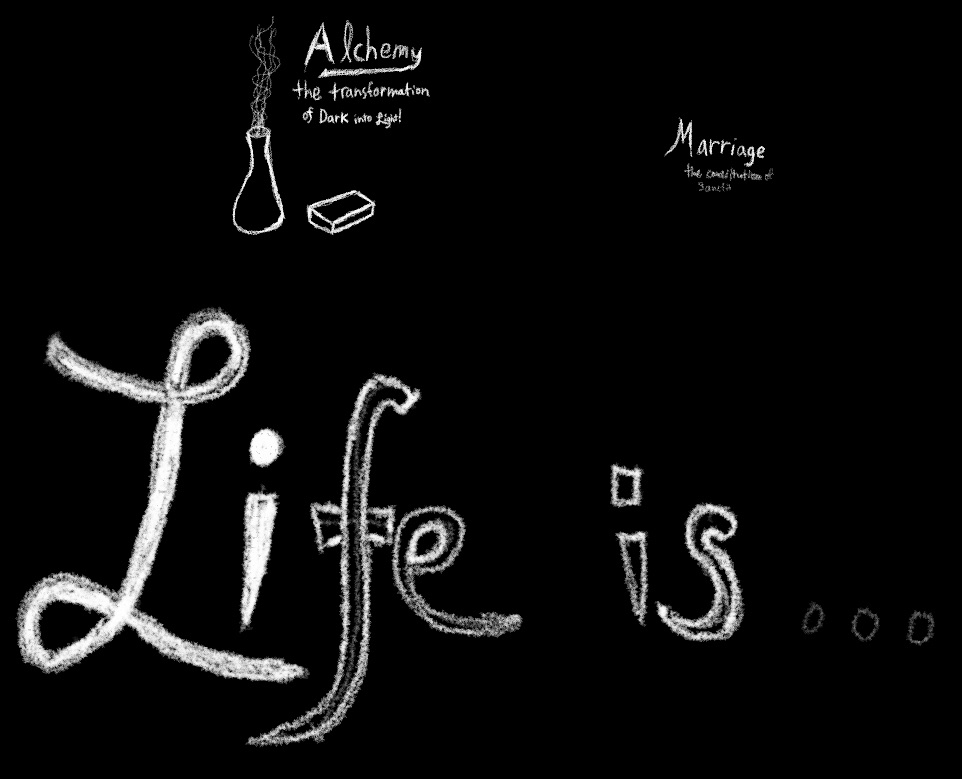 Alchemy
the transformation
of Dark into Light!
Marriage
the of
Life is...